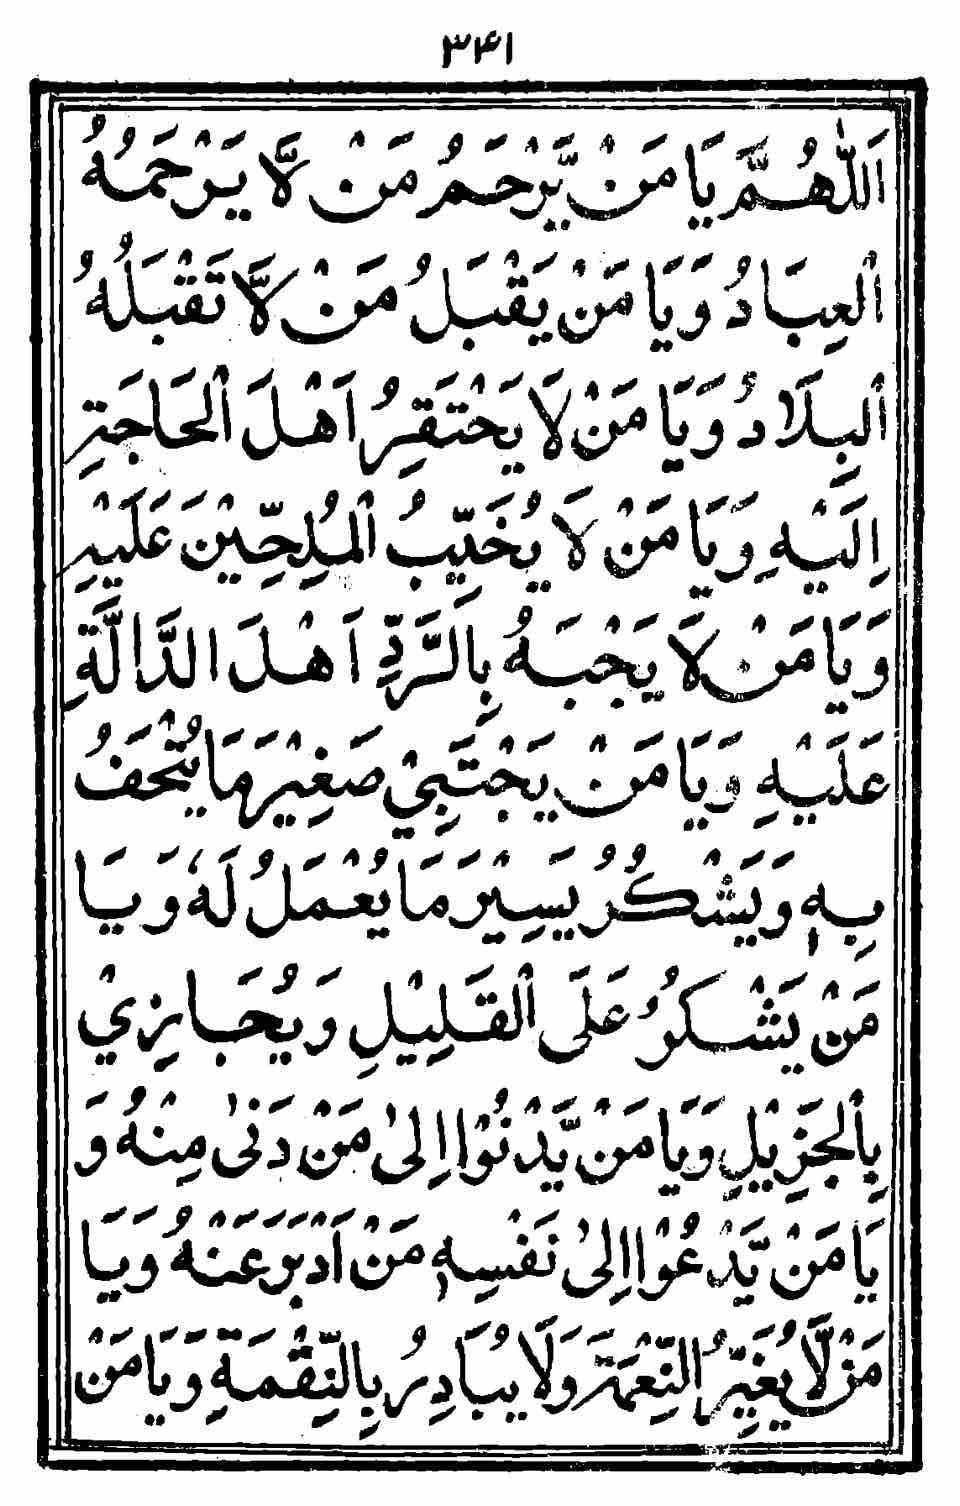 ۳۴۱
اَللّٰهُمَّ يَا مَنْ يَّرْحَمُ مَنْ لَّا يَرْحَمُهُ
الْعِبَادُ وَيَا مَنْ يَقْبَلُ مَنْ لَّا تَقْبَلُهُ
الْبِلَادُ وَيَا مَنْ لَا يَحْتَقِرُ اَهْلَ الْحَاجَةِ
اِلَيْهِ وَيَا مَنْ لَا يُخَيِّبُ الْمُلِحِّيْنَ عَلَيْهِ
وَيَا مَنْ لَّا يَجْبَهُ بِالرَّدِّ اَهْلَ الدَّالَّةِ
عَلَيْهِ وَيَا مَنْ يَجْتَبِيْ صَغِيْرَ مَا يُتْحَفُ
بِهٖ وَيَشْكُرُ يَسِيْرَ مَا يُعْمَلُ لَهٗ وَيَا
مَنْ يَشْكُرُ عَلَى الْقَلِيْلِ وَيُجَازِيْ
بِالْجَزِيْلِ وَيَا مَنْ يَّدْنُوْا اِلىٰ مَنْ دَنىٰ مِنْهُ وَ
يَا مَنْ يَّدْعُوْا اِلىٰ نَفْسِهٖ مَنْ اَدْبَرَ عَنْهُ وَيَا
مَنْ لَّا يُغَيِّرُ النِّعْمَةَ وَلَا يُبَادِرُ بِالنِّقْمَةِ وَيَا مَنْ